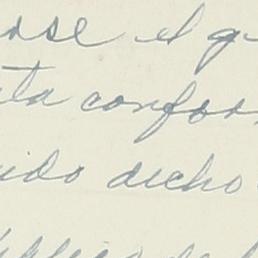 ase el q
ta confor
ido dicho